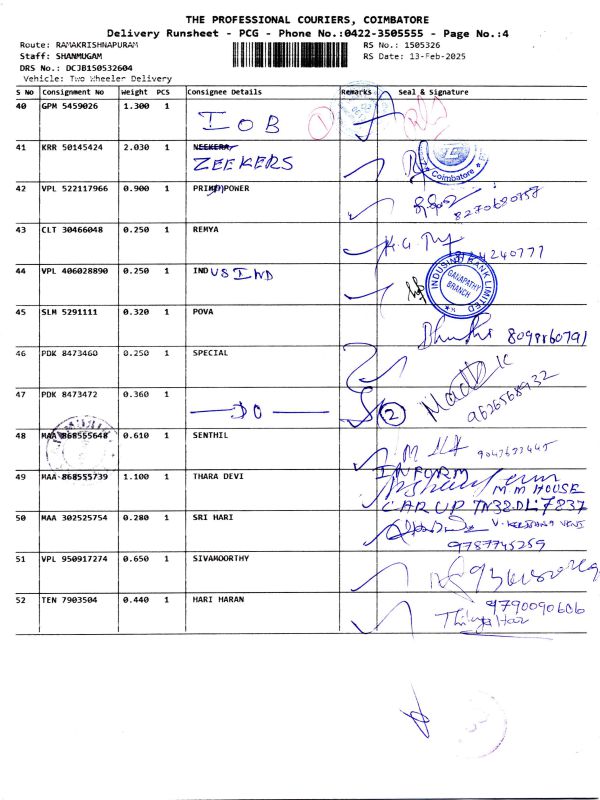 THE PROFESSIONAL COURIERS, COIMBATORE
Delivery Runsheet - PCG - Phone No.:0422-3505555 - Page No.:4
Route: RAMAKRISHNAPURAM RS No.: 1505326
Staff: SHANMUGAM RS Date: 13-Feb-2025
DRS No.: DCJB150532604
Vehicle: Two Wheeler Delivery
S No Consignment No Weight PCS Consignee Details Remarks Seal & Signature
40 GPM 5459026 1.300 1 IOB 1
41 KRR 50145424 2.030 1 NEEKERA
ZEEKERS
Coimbatore
42 VPL 522117966 0.900 1 PRIMPOWER
8270680757
43 CLT 30466048 0.250 1 REMYA
240777
44 VPL 406028890 0.250 1 INDUSIND
INDUSIND BANK LIMITED
GANAPATHY
BRANCH
45 SLM 5291111 0.320 1 POVA
8098860791
46 PDK 8473460 0.250 1 SPECIAL
47 PDK 8473472 0.360 1 DO 2
9626568932
48 MAA 868555648 0.610 1 SENTHIL
49 MAA 868555739 1.100 1 THARA DEVI INFORM
M.M HOUSE
CAR UP TN32DL:7837
50 MAA 302525754 0.280 1 SRI HARI
9787745259
51 VPL 950917274 0.650 1 SIVAMOORTHY
52 TEN 7903504 0.440 1 HARI HARAN
9790090606